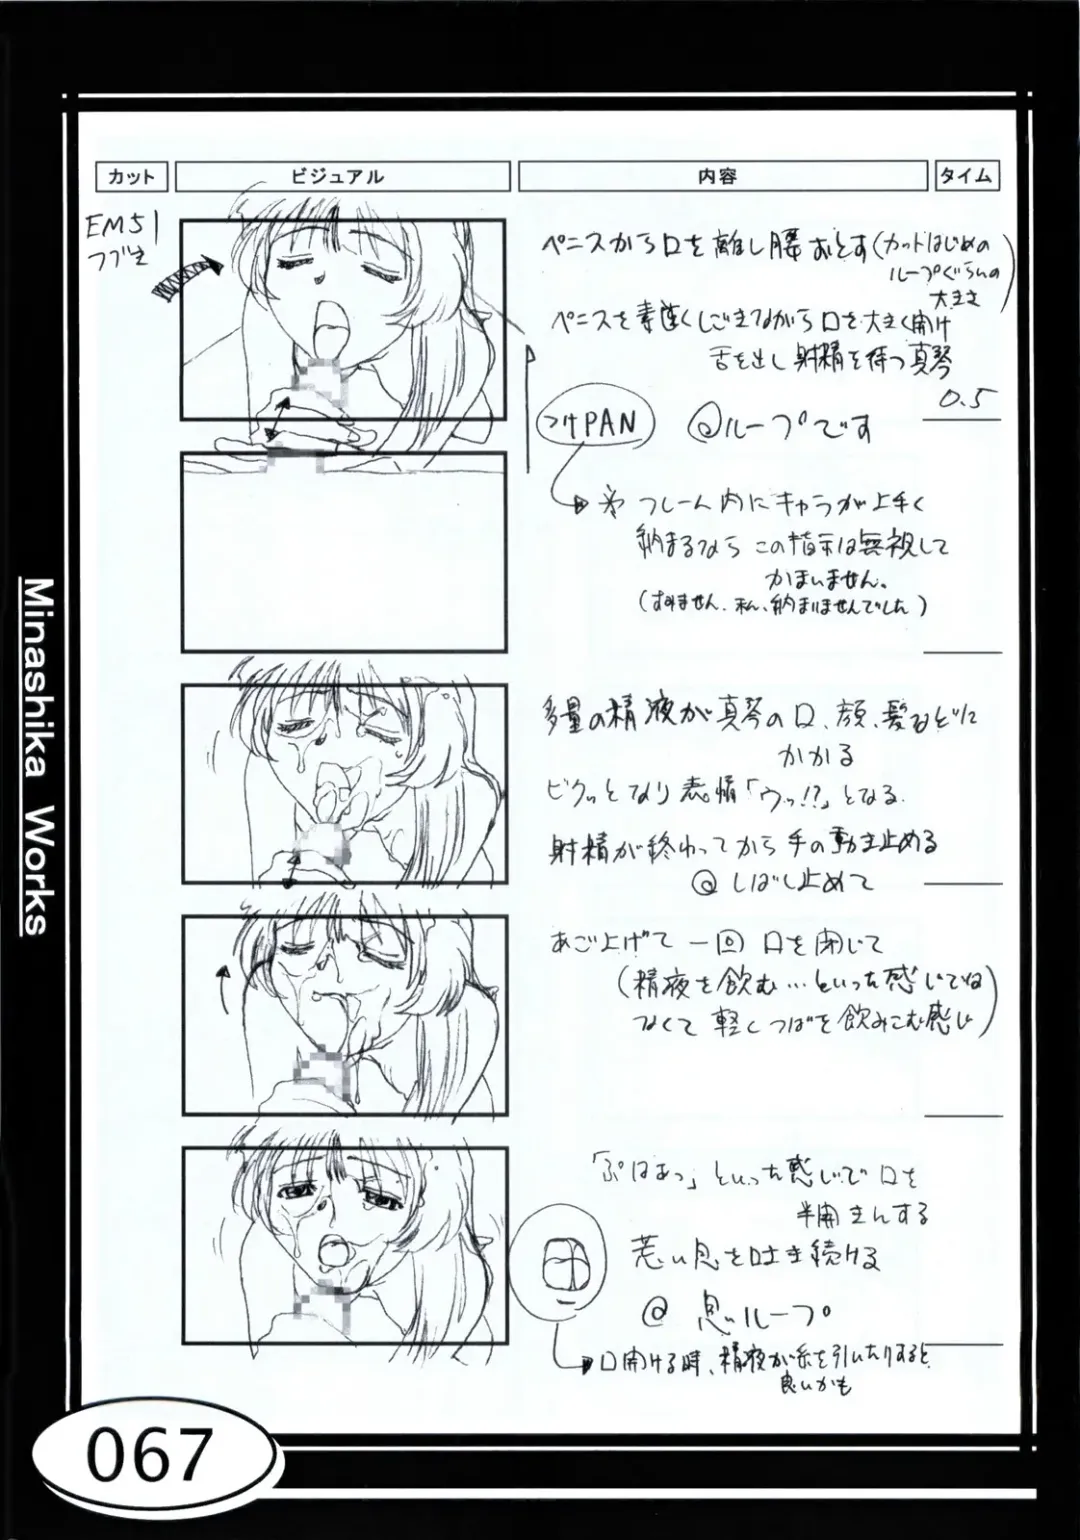 カット
ビジュアル
内容
タイム
EM51
つづき
ペニスから口を離し腰おとす(カットはじめの
ループぐらいの
大きさ)
ペニスを素速くしごきながら口を大きく開け
舌を出し射精を待つ真琴
0.5
つけPAN
@ループです
※フレーム内にキャラが上手く
納まるなら この指示は無視して
かまいません。
(すみません、私、納まりませんでした)
多量の精液が真琴の口、顔、髪などに
かかる
ビクッとなり表情「ウッ!?」となる
射精が終わってから手の動き止める
@しばし止めて
あご上げて 一回 口を閉じて
(精液を飲む…といった感じでは
なくて 軽くつばを飲みこむ感じ)
「ぷはあっ」といった感じで口を
半開きにする
荒い息を吐き続ける
@ 息ループ
口開ける時、精液が糸を引いたりすると
良いかも
Minashika Works
067